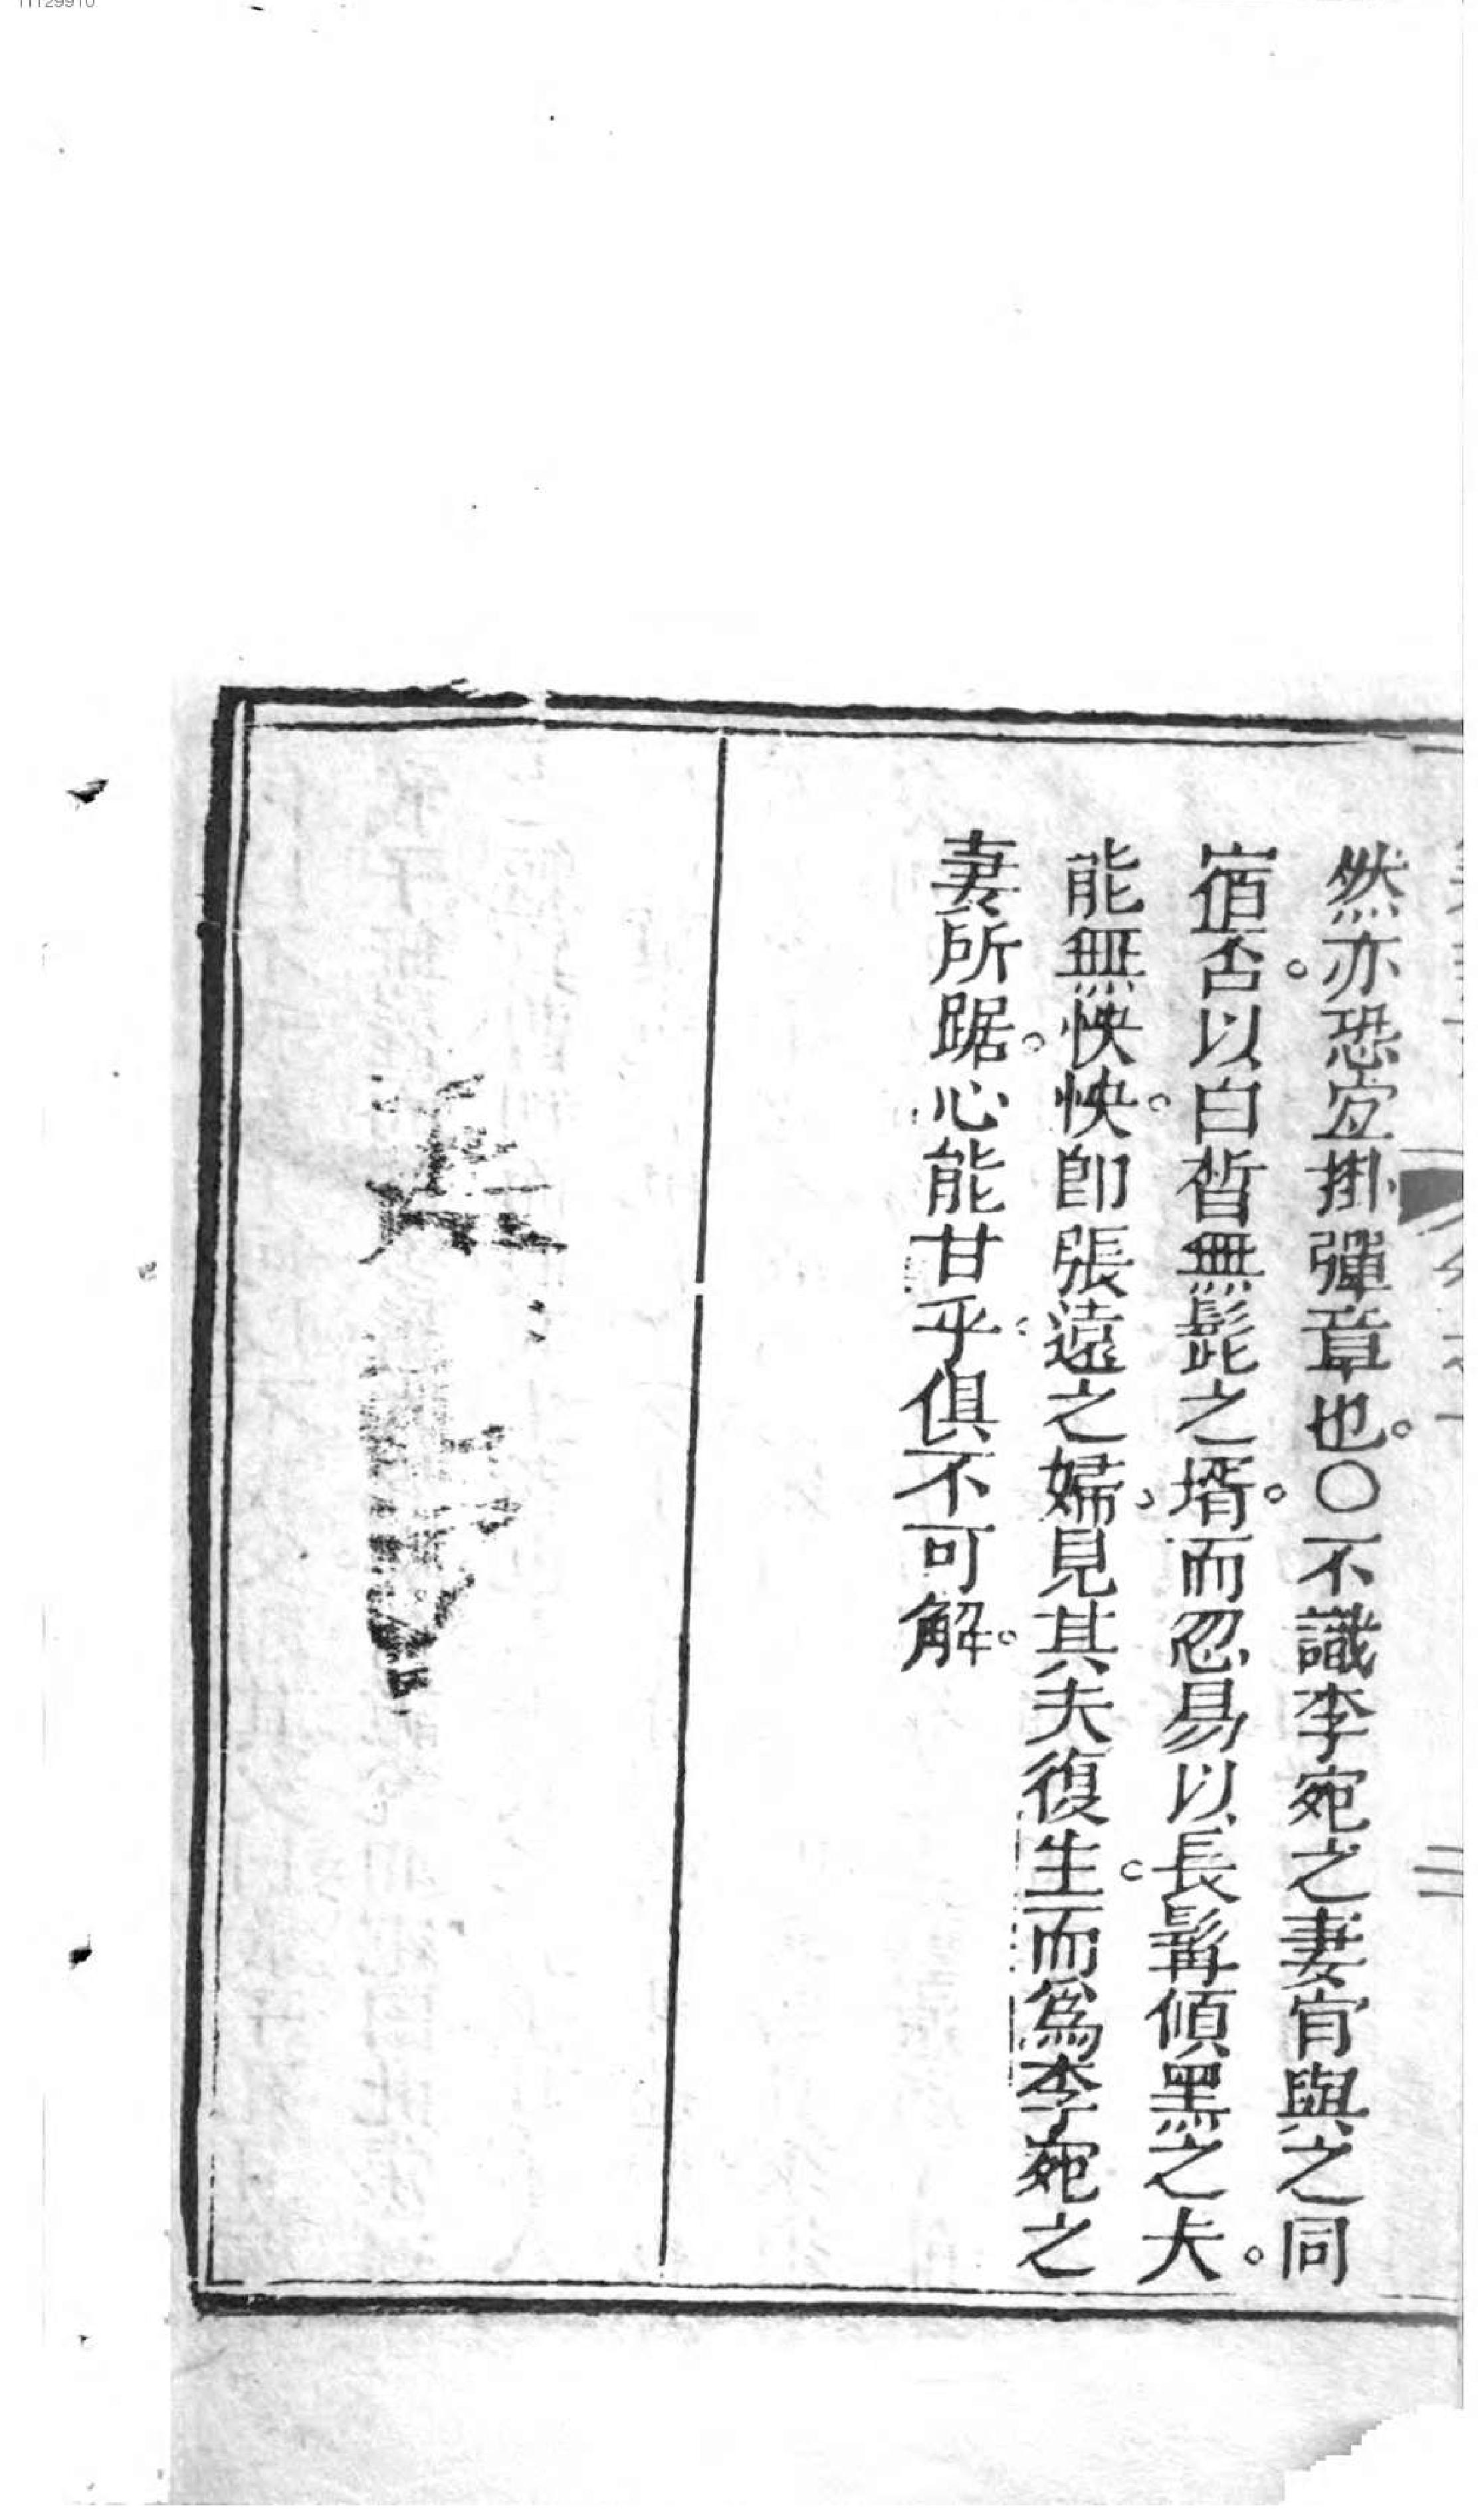 然亦恐宜掛彈章也。〇不識李宛之妻肯與之同
宿否。以白晳無髭之壻。而忍易以長髯傾黑之夫。
能無怏怏。卽張遠之婦、見其夫復生。而爲李宛之
妻所踞。心能甘乎。俱不可解。